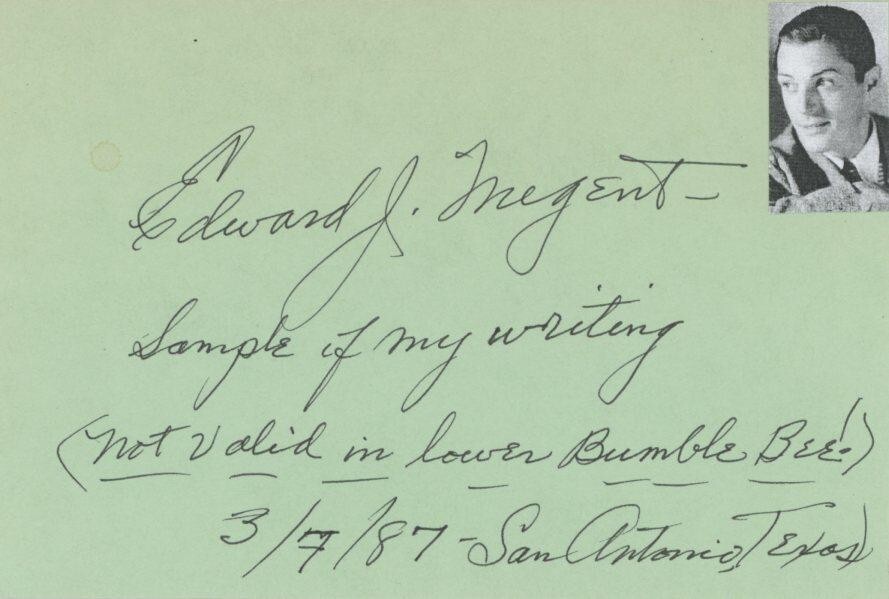 Edward J. Megent -
Sample of my writing
(Not Valid in lower Bumble Bee!)
3/7/87 - San Antonio, Texas)